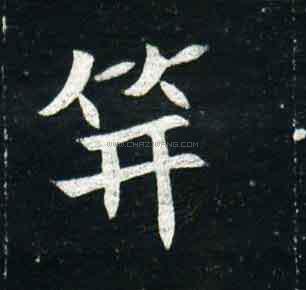 笄
WWW.CHAZIWANG.COM